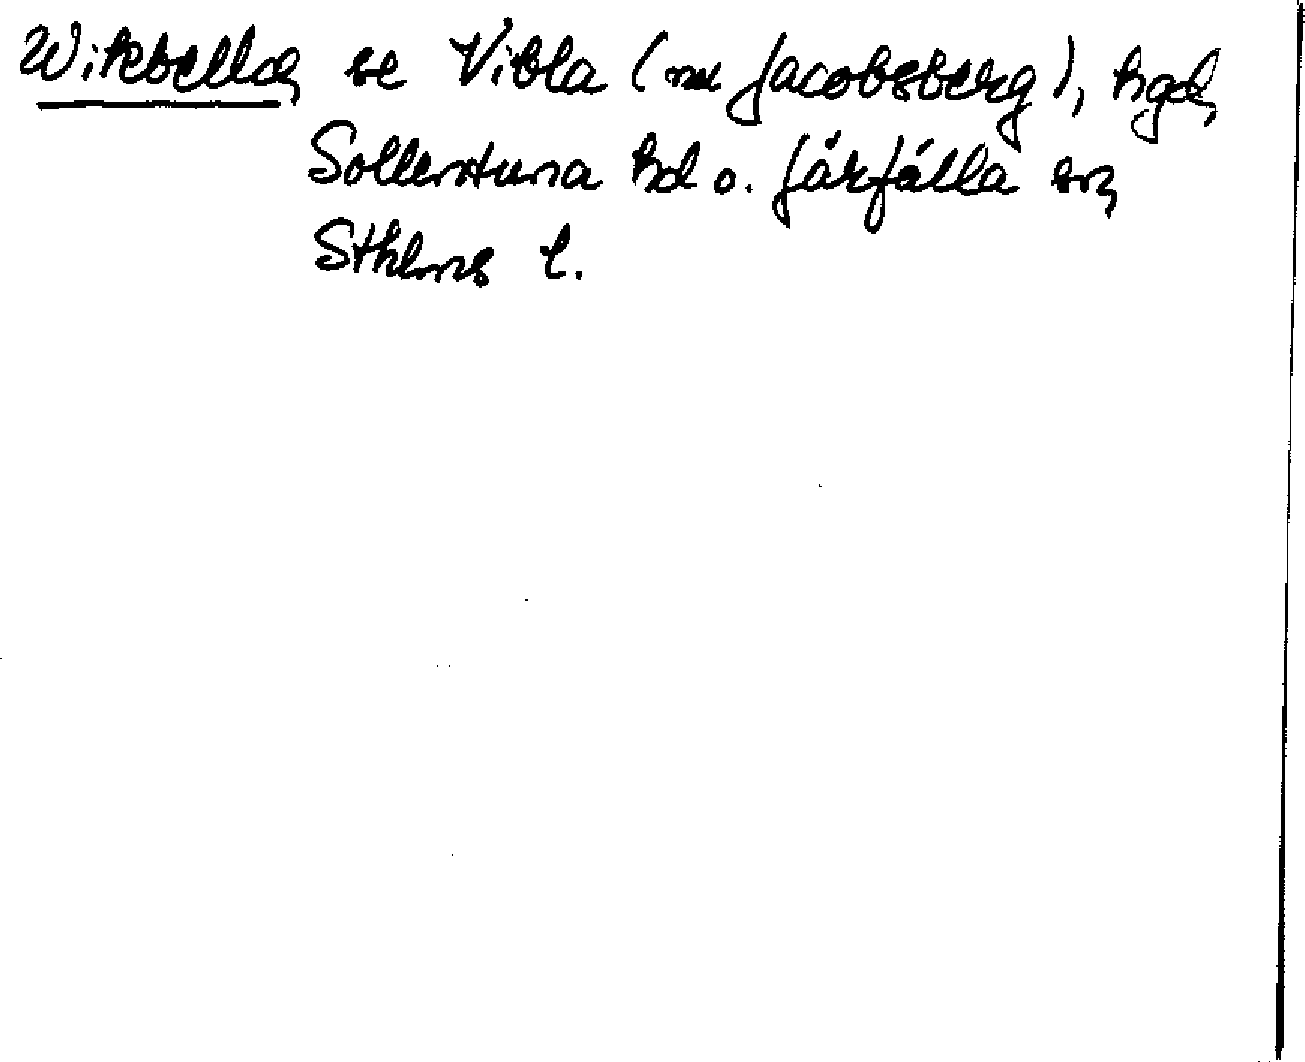 Witebella, se Vibla (nu Jacobsberg), hgd,
Sollentuna hd o. Järfälla sn,
Sthlms l.